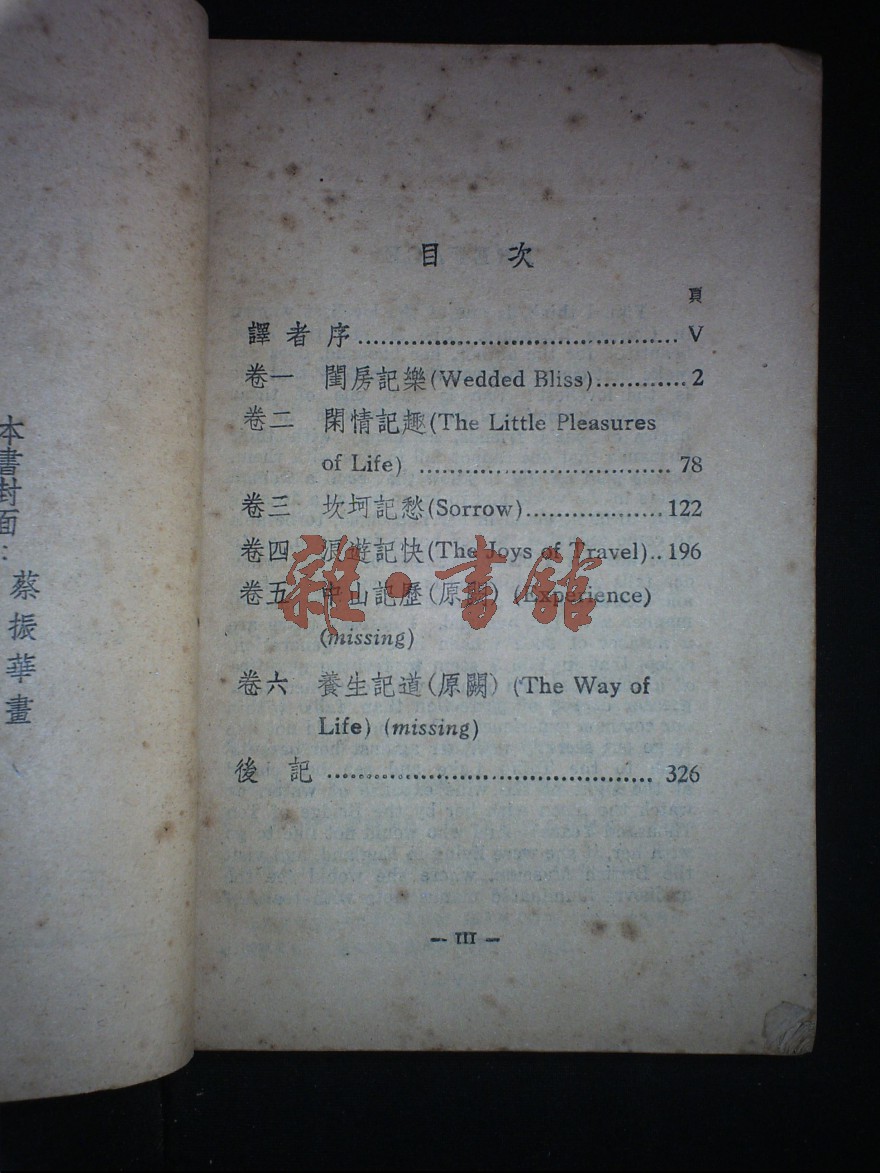 目次
頁
譯者序........................................ V
卷一 閨房記樂(Wedded Bliss)............2
卷二 閑情記趣(The Little Pleasures
of Life) ................................ 78
卷三 坎坷記愁(Sorrow)..................122
卷四 浪遊記快(The Joys of Travel)..196
卷五 中山記歷(原闕) (Experience)
(missing)
卷六 養生記道(原闕) (The Way of
Life) (missing)
後記 .......................................... 326
— III —
本書封面：
蔡振華畫
雜·書館